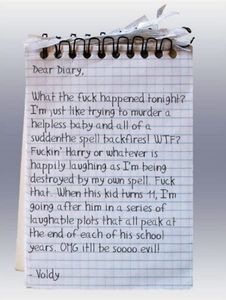 Dear Diary,
What the fuck happened tonight?
I'm just like trying to murder a
helpless baby and all of a
suddenthe spell backfires! WTF?
Fuckin' Harry or whatever is
happily laughing as I'm being
destroyed by my own spell. Fuck
that. When this kid turns 11, I'm
going after him in a series of
laughable plots that all peak at
the end of each of his school
years. OMG it'll be soooo evil!
- Voldy